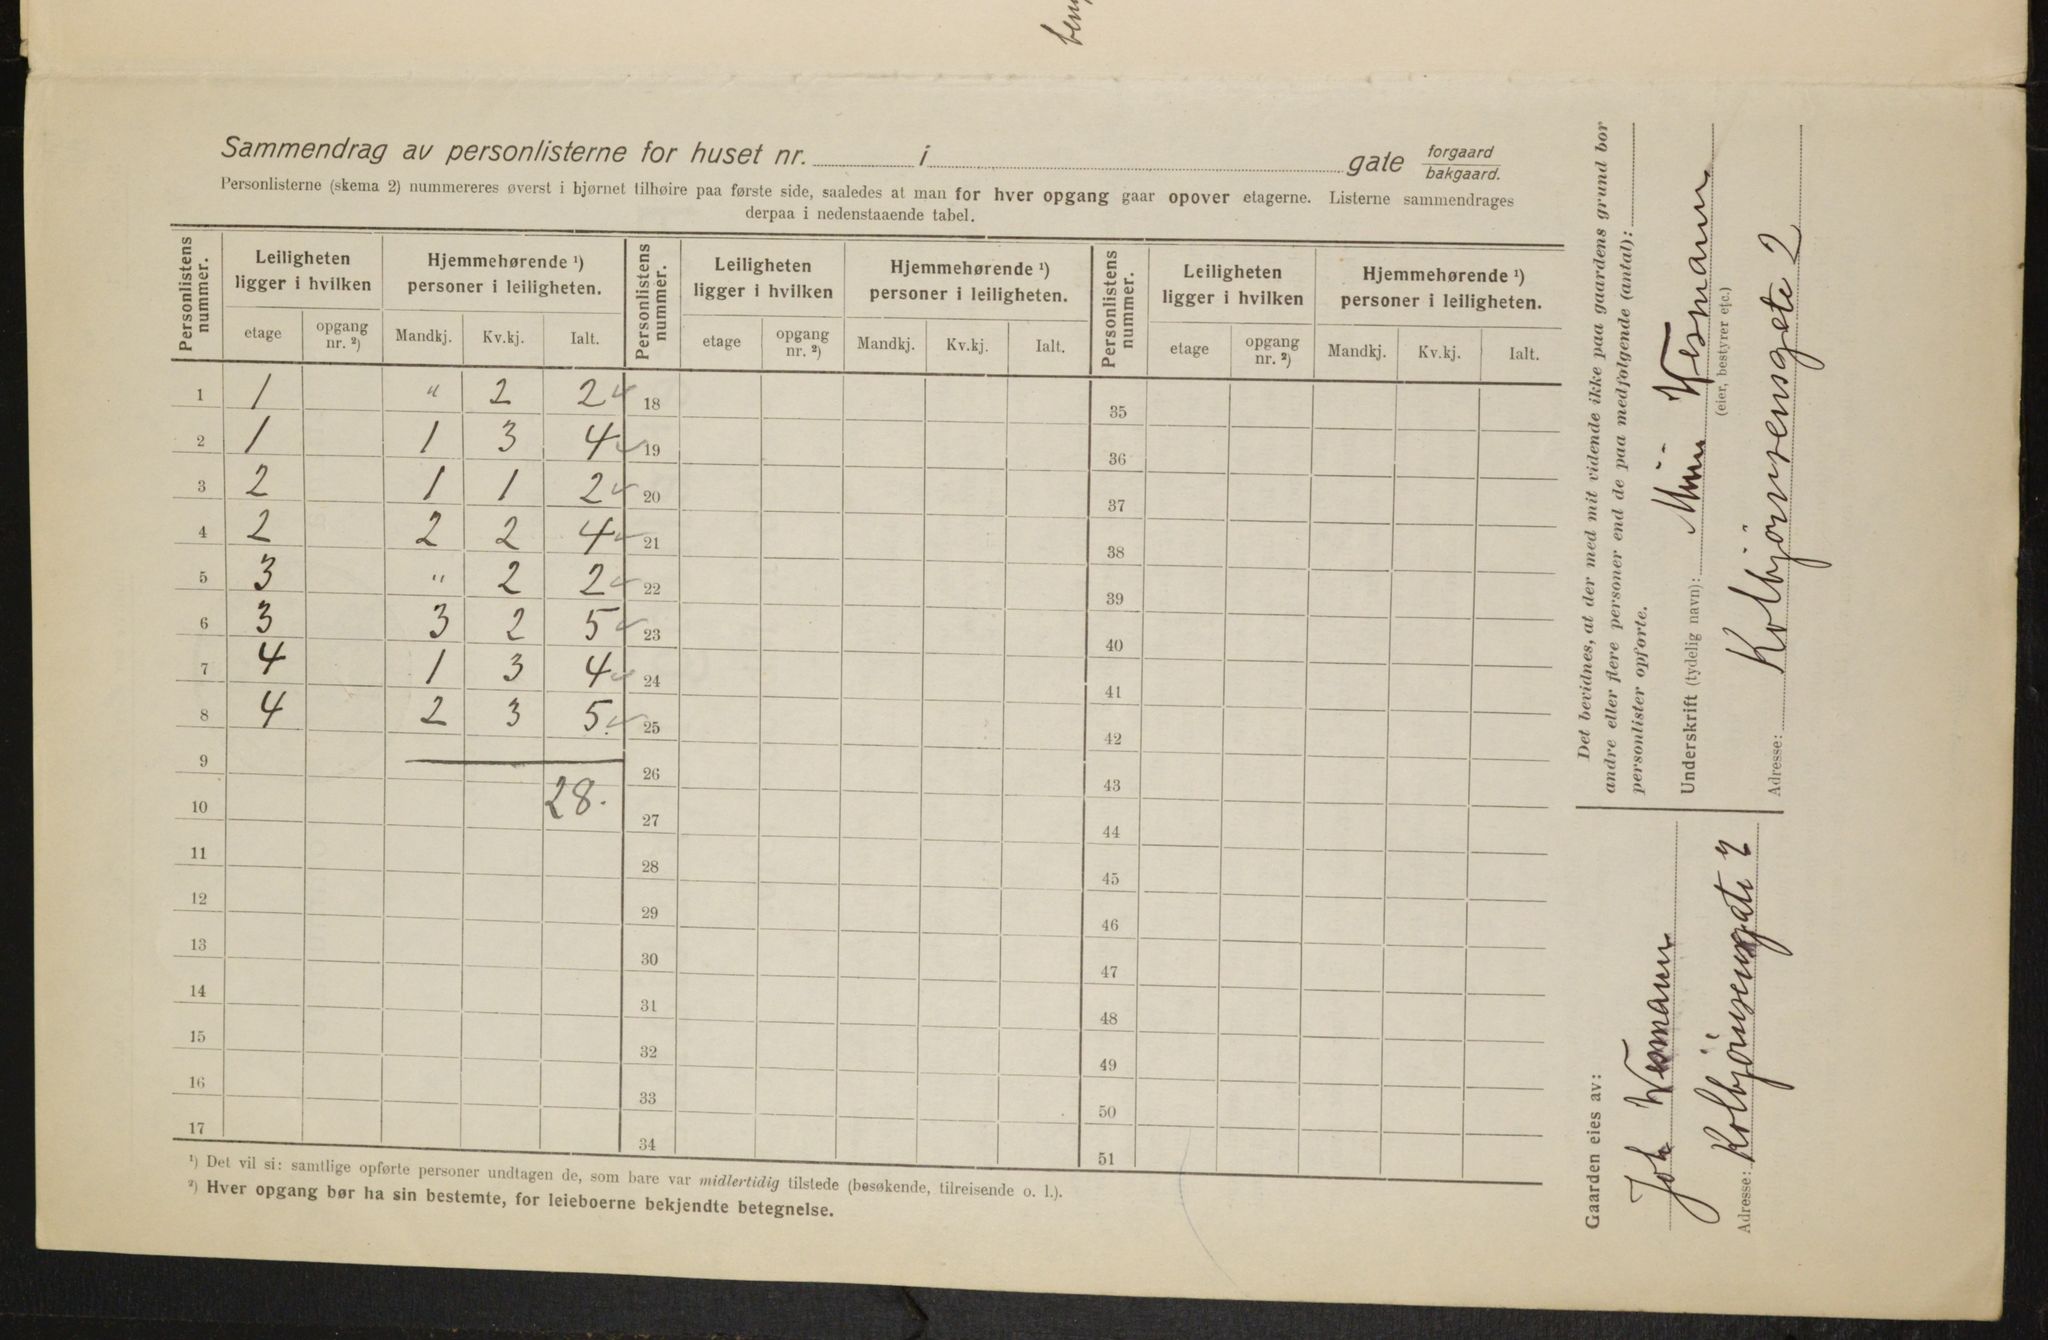 ben
Sammendrag av personlisterne for huset nr. i gate forgaard bakgaard.
Personlisterne (skema 2) nummereres øverst i hjørnet tilhøire paa første side, saaledes at man for hver opgang gaar opover etagerne. Listerne sammendrages
derpaa i nedenstaaende tabel.
Personlistens nummer. Leiligheten ligger i hvilken Hjemmehørende ¹) personer i leiligheten. Personlistens nummer. Leiligheten ligger i hvilken Hjemmehørende ¹) personer i leiligheten. Personlistens nummer. Leiligheten ligger i hvilken Hjemmehørende ¹) personer i leiligheten.
etage opgang nr. ²) Mandkj. Kv.kj. Ialt. etage opgang nr. ²) Mandkj. Kv.kj. Ialt. etage opgang nr. ²) Mandkj. Kv.kj. Ialt.
1 1 " 2 2 ✓ 18 35
2 1 1 3 4 ✓ 19 36
3 2 1 1 2 ✓ 20 37
4 2 2 2 4 ✓ 21 38
5 3 " 2 2 ✓ 22 39
6 3 3 2 5 ✓ 23 40
7 4 1 3 4 ✓ 24 41
8 4 2 3 5. ✓ 25 42
9 26 43
10 28. 27 44
11 28 45
12 29 46
13 30 47
14 31 48
15 32 49
16 33 50
17 34 51
¹) Det vil si: samtlige opførte personer undtagen de, som bare var midlertidig tilstede (besøkende, tilreisende o. l.).
²) Hver opgang bør ha sin bestemte, for leieboerne bekjendte betegnelse.
Det bevidnes, at der med mit vidende ikke paa gaardens grund bor
andre eller flere personer end de paa medfølgende (antal):
personlister opførte.
Underskrift (tydelig navn): Wesmann
(eier, bestyrer etc.)
Adresse: Kolbjörnsensgete 2
Gaarden eies av:
Joh Wesmann
Adresse: Kolbjörnsensgate 2